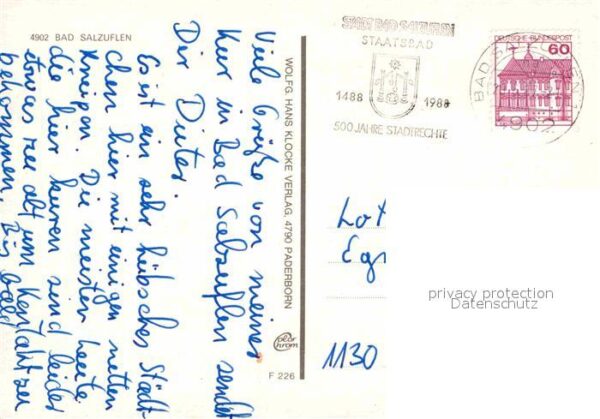 4902 BAD SALZUFLEN
Viele Grüße von meiner
Kur in Bad Salzuflen sendet
Dir Dieter.
Es ist ein sehr hübsches Städt-
chen hier mit einigen netten
Kneipen. Die meisten Leute
die hier kuren sind leider
etwas zu alt um Kontakt zu
bekommen. Bis bald
WOLFG. HANS KLOCKE VERLAG, 4790 PADERBORN
colorchrom
F 226
STADT BAD SALZUFLEN
STAATSBAD
1488 1988
500 JAHRE STADTRECHTE
DEUTSCHE BUNDESPOST
60
BAD SALZUFLEN
4902
Lot
Egr
1130
privacy protection
Datenschutz